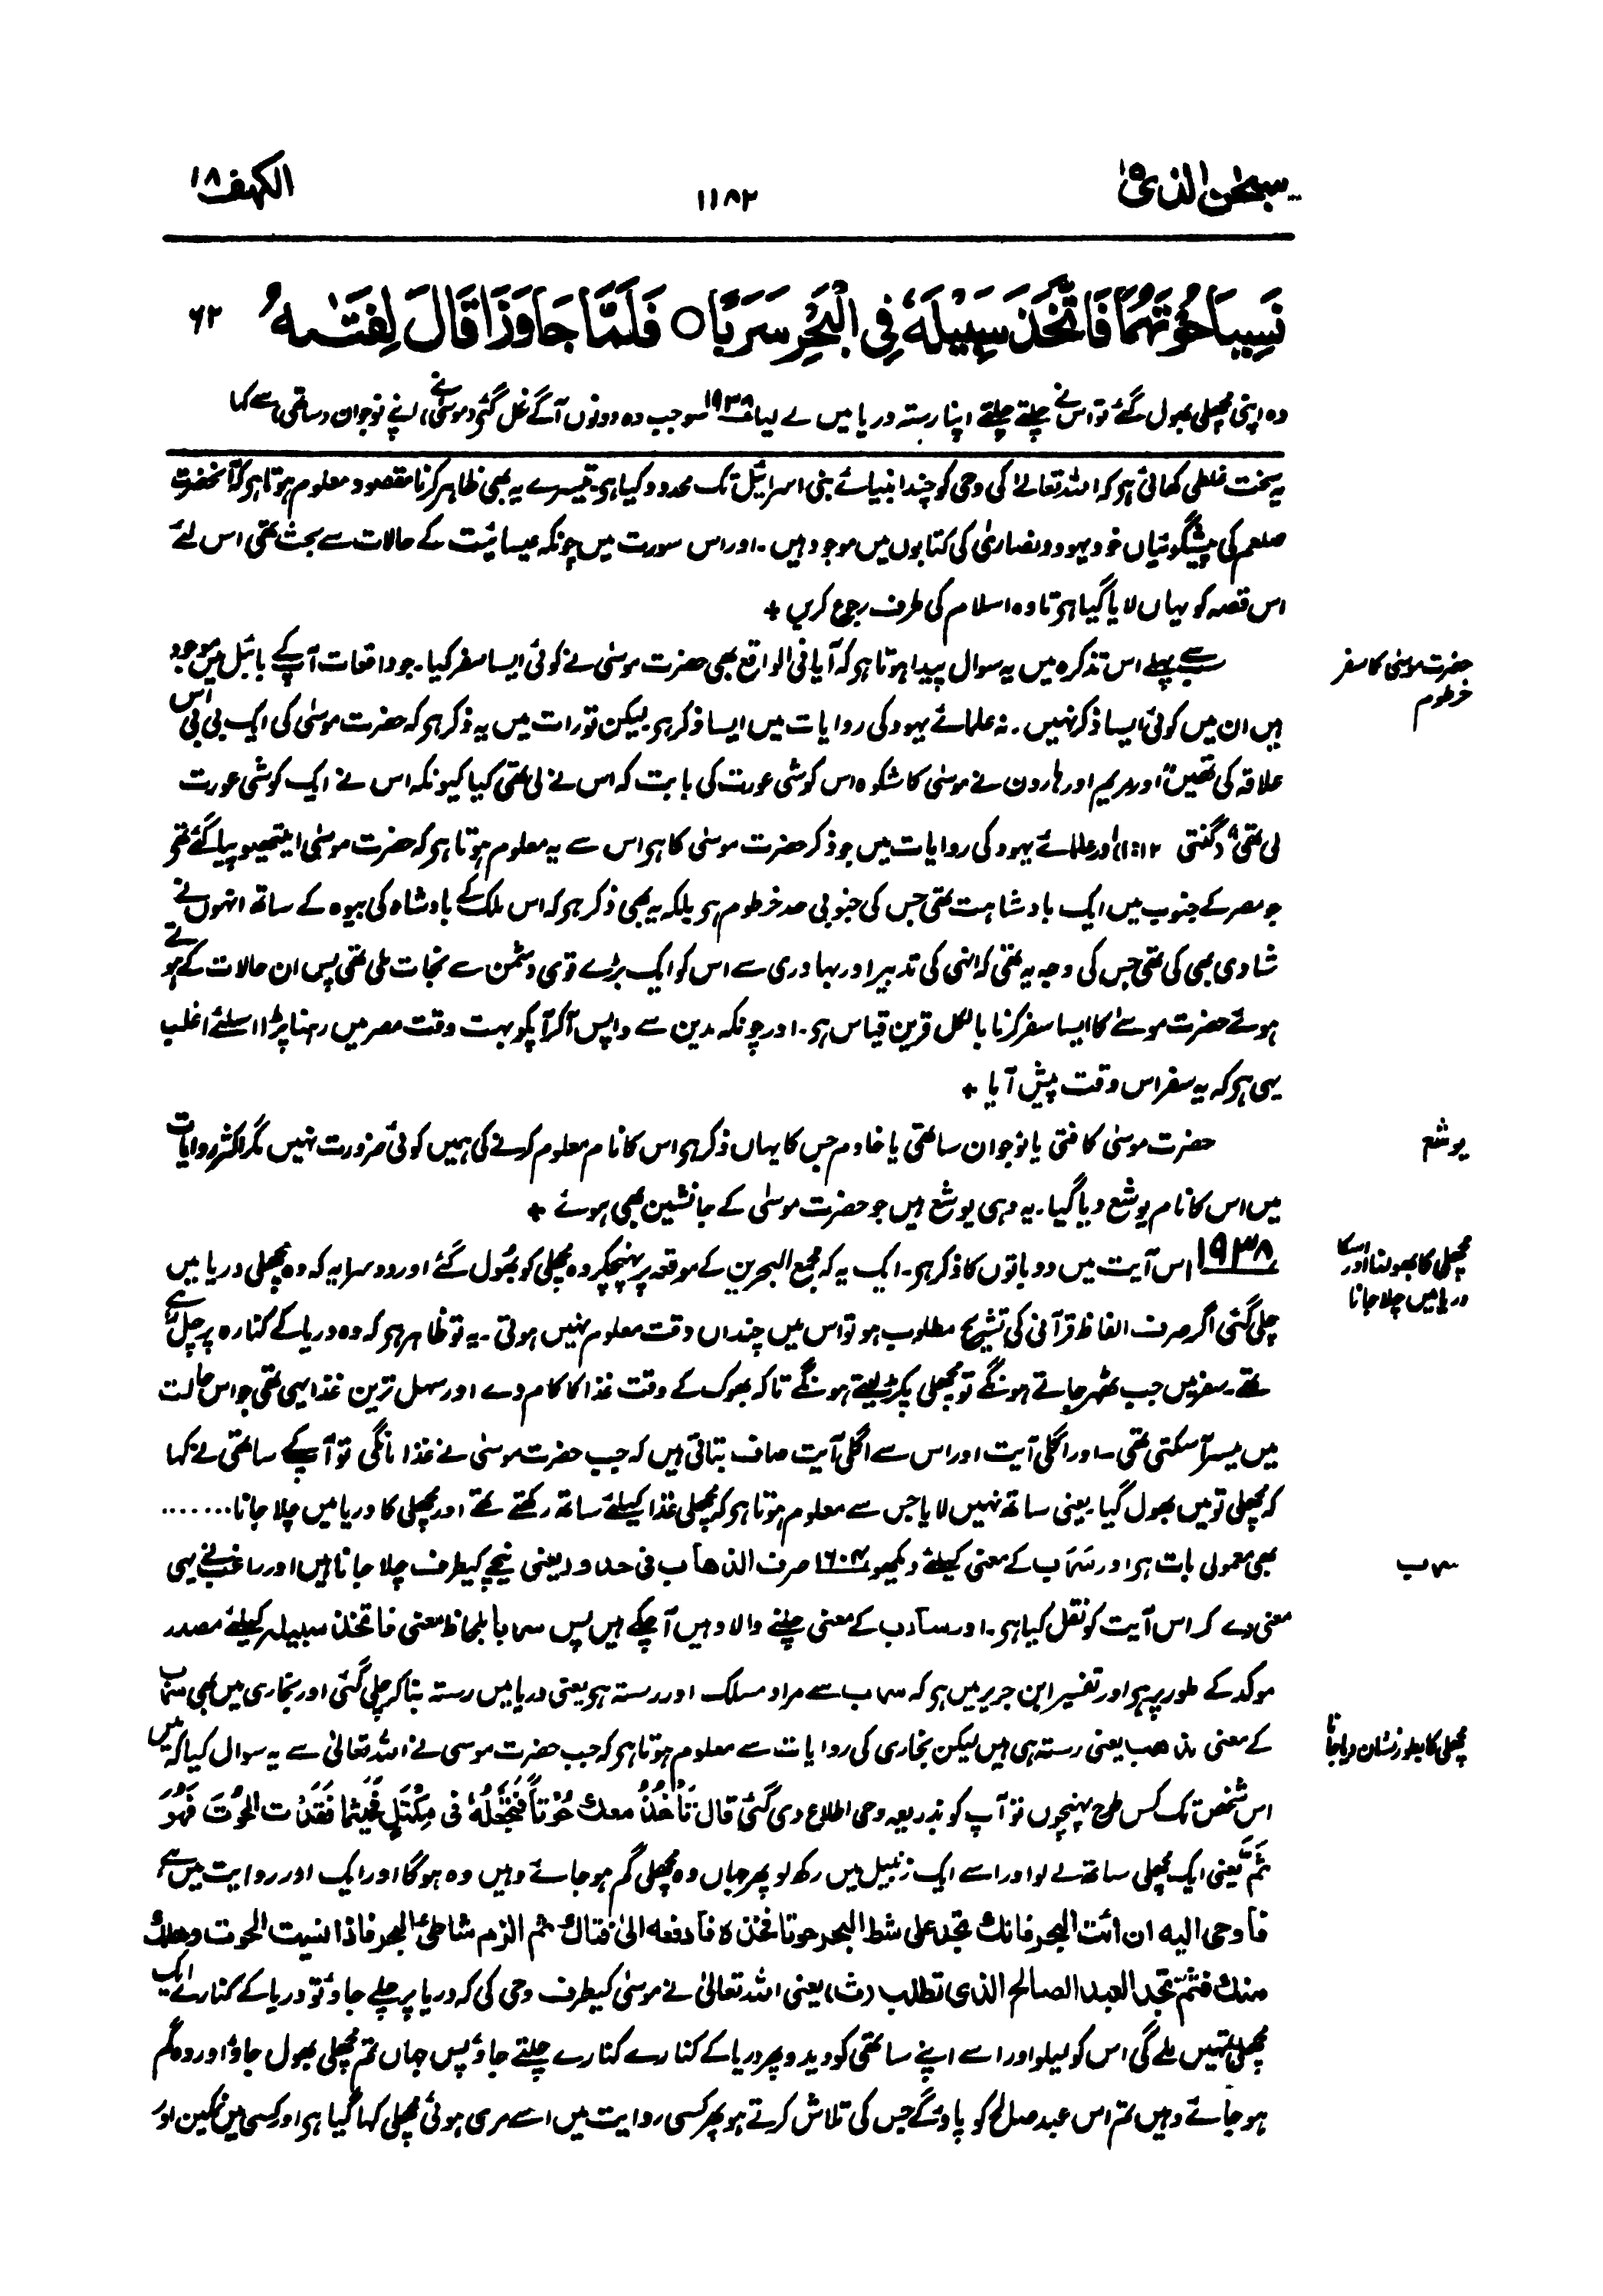 سبحٰن الذی ۱۵
۱۱۸۲
الکہف ۱۸
نَسِيَا حُوْتَهُمَا فَاتَّخَذَ سَبِيْلَهٗ فِي الْبَحْرِ سَرَبًا ○ فَلَمَّا جَاوَزَا قَالَ لِفَتٰىهُ ۶۲
وہ اپنی مچھلی بھول گئے تو اس نے چلتے چلتے اپنا رستہ دریا میں لے لیا ۱۹۳۸ سو جب وہ دونوں آگے نکل گئے (موسیٰ نے) اپنے نوجوان (ساتھی) سے کہا
یہ سخت غلطی کھائی ہو کہ اللہ تعالےٰ کی وحی کو چند انبیائے بنی اسرائیل تک محدود کیا ہو۔ تیسرے یہ بھی ظاہر کرنا مقصود معلوم ہوتا ہو کہ آنحضرت
صلعم کی پیشگوئیاں خود یہود و نصاریٰ کی کتابوں میں موجود ہیں۔ اور اس سورت میں چونکہ عیسائیت کے حالات سے بحث تھی اس لئے
اس قصہ کو یہاں لایا گیا ہو تا وہ اسلام کی طرف رجوع کریں +
حضرت موسیٰ کا سفر
خرطوم
سب سے پہلے اس تذکرہ میں یہ سوال پیدا ہوتا ہو کہ آیا فی الواقع بھی حضرت موسیٰ نے کوئی ایسا سفر کیا۔ جو واقعات آپ کے بائبل میں موجود
ہیں ان میں کوئی ایسا ذکر نہیں۔ نہ علمائے یہود کی روایات میں ایسا ذکر ہو۔ لیکن تورات میں یہ ذکر ہو کہ حضرت موسیٰ کی ایک بی بی اس
علاقہ کی تھیں "اور مریم اور ہارون نے موسیٰ کا شکوہ اس کوشی عورت کی بابت کہ اس نے لی تھی کیا کیونکہ اس نے ایک کوشی عورت
لی تھی" (گنتی ۱۲:۱) اور علمائے یہود کی روایات میں جو ذکر حضرت موسیٰ کا ہو اس سے یہ معلوم ہوتا ہو کہ حضرت موسیٰ ایتھیوپیا گئے تھے
جو مصر کے جنوب میں ایک بادشاہت تھی جس کی جنوبی حد خرطوم ہو بلکہ یہ بھی ذکر ہو کہ اس ملک کے بادشاہ کی بیوہ کے ساتھ انہوں نے
شادی بھی کی تھی جس کی وجہ یہ تھی کہ انہی کی تدبیر اور بہادری سے اس کو ایک بڑے قوی دشمن سے نجات ملی تھی پس ان حالات کے ہوتے
ہوئے حضرت موسےٰ کا ایسا سفر کرنا بالکل قرین قیاس ہو۔ اور چونکہ مدین سے واپس آکر آپکو بہت وقت مصر میں رہنا پڑا اسلئے اغلب
یہی ہو کہ یہ سفر اس وقت پیش آیا +
یوشع
حضرت موسیٰ کا فتی یا نوجوان ساتھی یا خادم جس کا یہاں ذکر ہو اس کا نام معلوم کرنے کی ہمیں کوئی ضرورت نہیں مگر اکثر روایات
میں اس کا نام یوشع دیا گیا۔ یہ وہی یوشع ہیں جو حضرت موسیٰ کے جانشین بھی ہوئے +
مچھلی کا بھولنا اور اسکا
دریا میں چلا جانا
۱۹۳۸ اس آیت میں دو باتوں کا ذکر ہو۔ ایک یہ کہ مجمع البحرین کے موقعہ پر پہنچکر وہ مچھلی کو بھول گئے اور دوسرا یہ کہ وہ مچھلی دریا میں
چلی گئی اگر صرف الفاظ قرآنی کی تشریح مطلوب ہو تو اس میں چنداں دقت معلوم نہیں ہوتی۔ یہ تو ظاہر ہو کہ وہ دریا کے کنارہ پر چل رہے
تھے۔ سفر میں جب ٹھہر جاتے ہونگے تو مچھلی پکڑ لیتے ہونگے تاکہ بھوک کے وقت غذا کا کام دے اور سہل ترین غذا یہی تھی جو اس حالت
میں میسر آسکتی تھی۔ اور اگلی آیت اور اس سے اگلی آیت صاف بتاتی ہیں کہ جب حضرت موسیٰ نے غذا مانگی تو آپ کے ساتھی نے کہا
کہ مچھلی تو میں بھول گیا۔ یعنی ساتھ نہیں لایا جس سے معلوم ہوتا ہو کہ مچھلی غذا کیلئے ساتھ رکھتے تھے اور مچھلی کا دریا میں چلا جانا.......
سرب
بھی معمولی بات ہو اور سَرَب کے معنی کیلئے دیکھو ۱۶۰۴ صرف الذھاب فی حدور یعنی نیچے کیطرف چلا جانا ہیں اور راغب نے یہی
معنی دے کر اس آیت کو نقل کیا ہو۔ اور سارب کے معنی چلنے والا وہیں آچکے ہیں پس سربا بلحاظ معنی فاتخذ سبیلہ کیلئے مصدر
موکد کے طور پر ہو اور تفسیر ابن جریر میں ہو کہ سرب سے مراد مسلک اور رستہ ہو یعنی دریا میں رستہ بنا کر چلی گئی اور بخاری میں بھی سرب
مچھلی کا بطور نشان دیا جانا
کے معنی مذھب یعنی رستہ ہی ہیں لیکن بخاری کی روایات سے معلوم ہوتا ہو کہ جب حضرت موسی نے اللہ تعالیٰ سے یہ سوال کیا کہ میں
اس شخص تک کس طرح پہنچوں تو آپ کو بذریعہ وحی اطلاع دی گئی قال تَاْخُذُ معك حُوْتًا فَتَجْعَلُهٗ فی مِكْتَلٍ فَحَیْثُما فَقَدْت الحُوْتَ فَهُوَ
ثَمَّ یعنی ایک مچھلی ساتھ لے لو اور اسے ایک زنبیل میں رکھ لو پھر جہاں وہ مچھلی گم ہو جائے وہیں وہ ہوگا اور ایک اور روایت میں ہے
فاوحی الیه ان ائت البحر فانك تجد علی شط البحر حوتا فخذه فادفعه الیٰ فتاك ثم الزم شاطئ البحر فاذا نسیت الحوت وهلك
منك فثم تجد العبد الصالح الذی تطلب (ث) یعنی اللہ تعالیٰ نے موسیٰ کیطرف وحی کی کہ دریا پر چلے جاؤ تو دریا کے کنارے ایک
مچھلی تمہیں ملے گی اس کو لیلو اور اسے اپنے ساتھی کو دیدو پھر دریا کے کنارے کنارے چلتے جاؤ پس جہاں تم مچھلی بھول جاؤ اور وہ گم
ہو جائے وہیں تم اس عبد صالح کو پاؤگے جس کی تلاش کرتے ہو پھر کسی روایت میں اسے مری ہوئی مچھلی کہا گیا ہو اور کسی میں نمکین اور